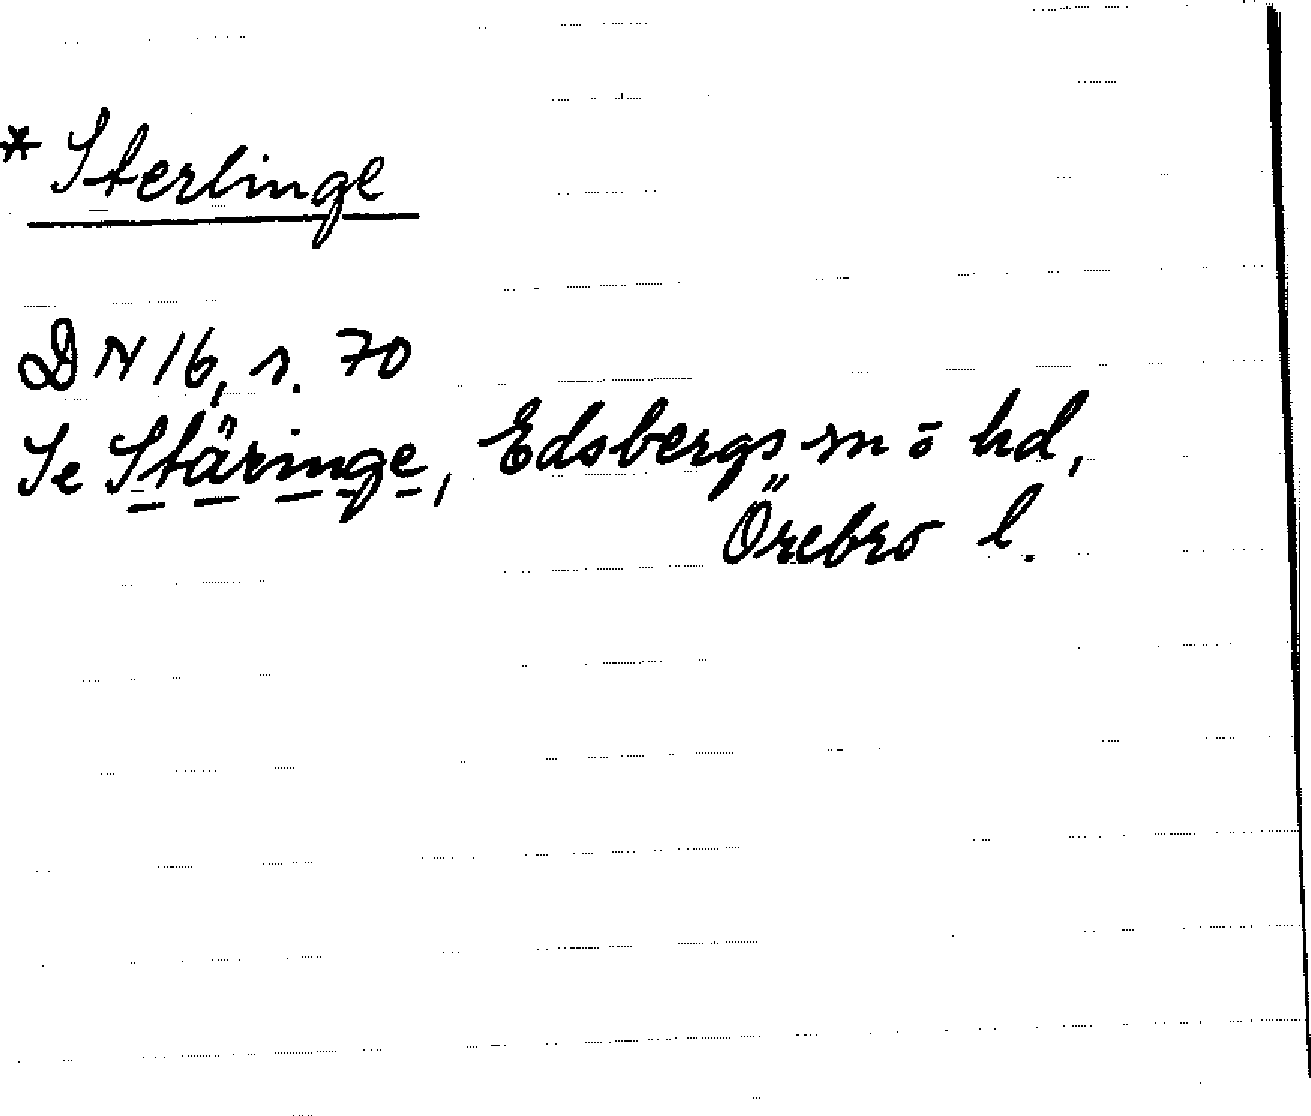 * Sterlinge
DN 16, s. 70
Se Stäringe, Edsbergs sn o hd,
Örebro l.